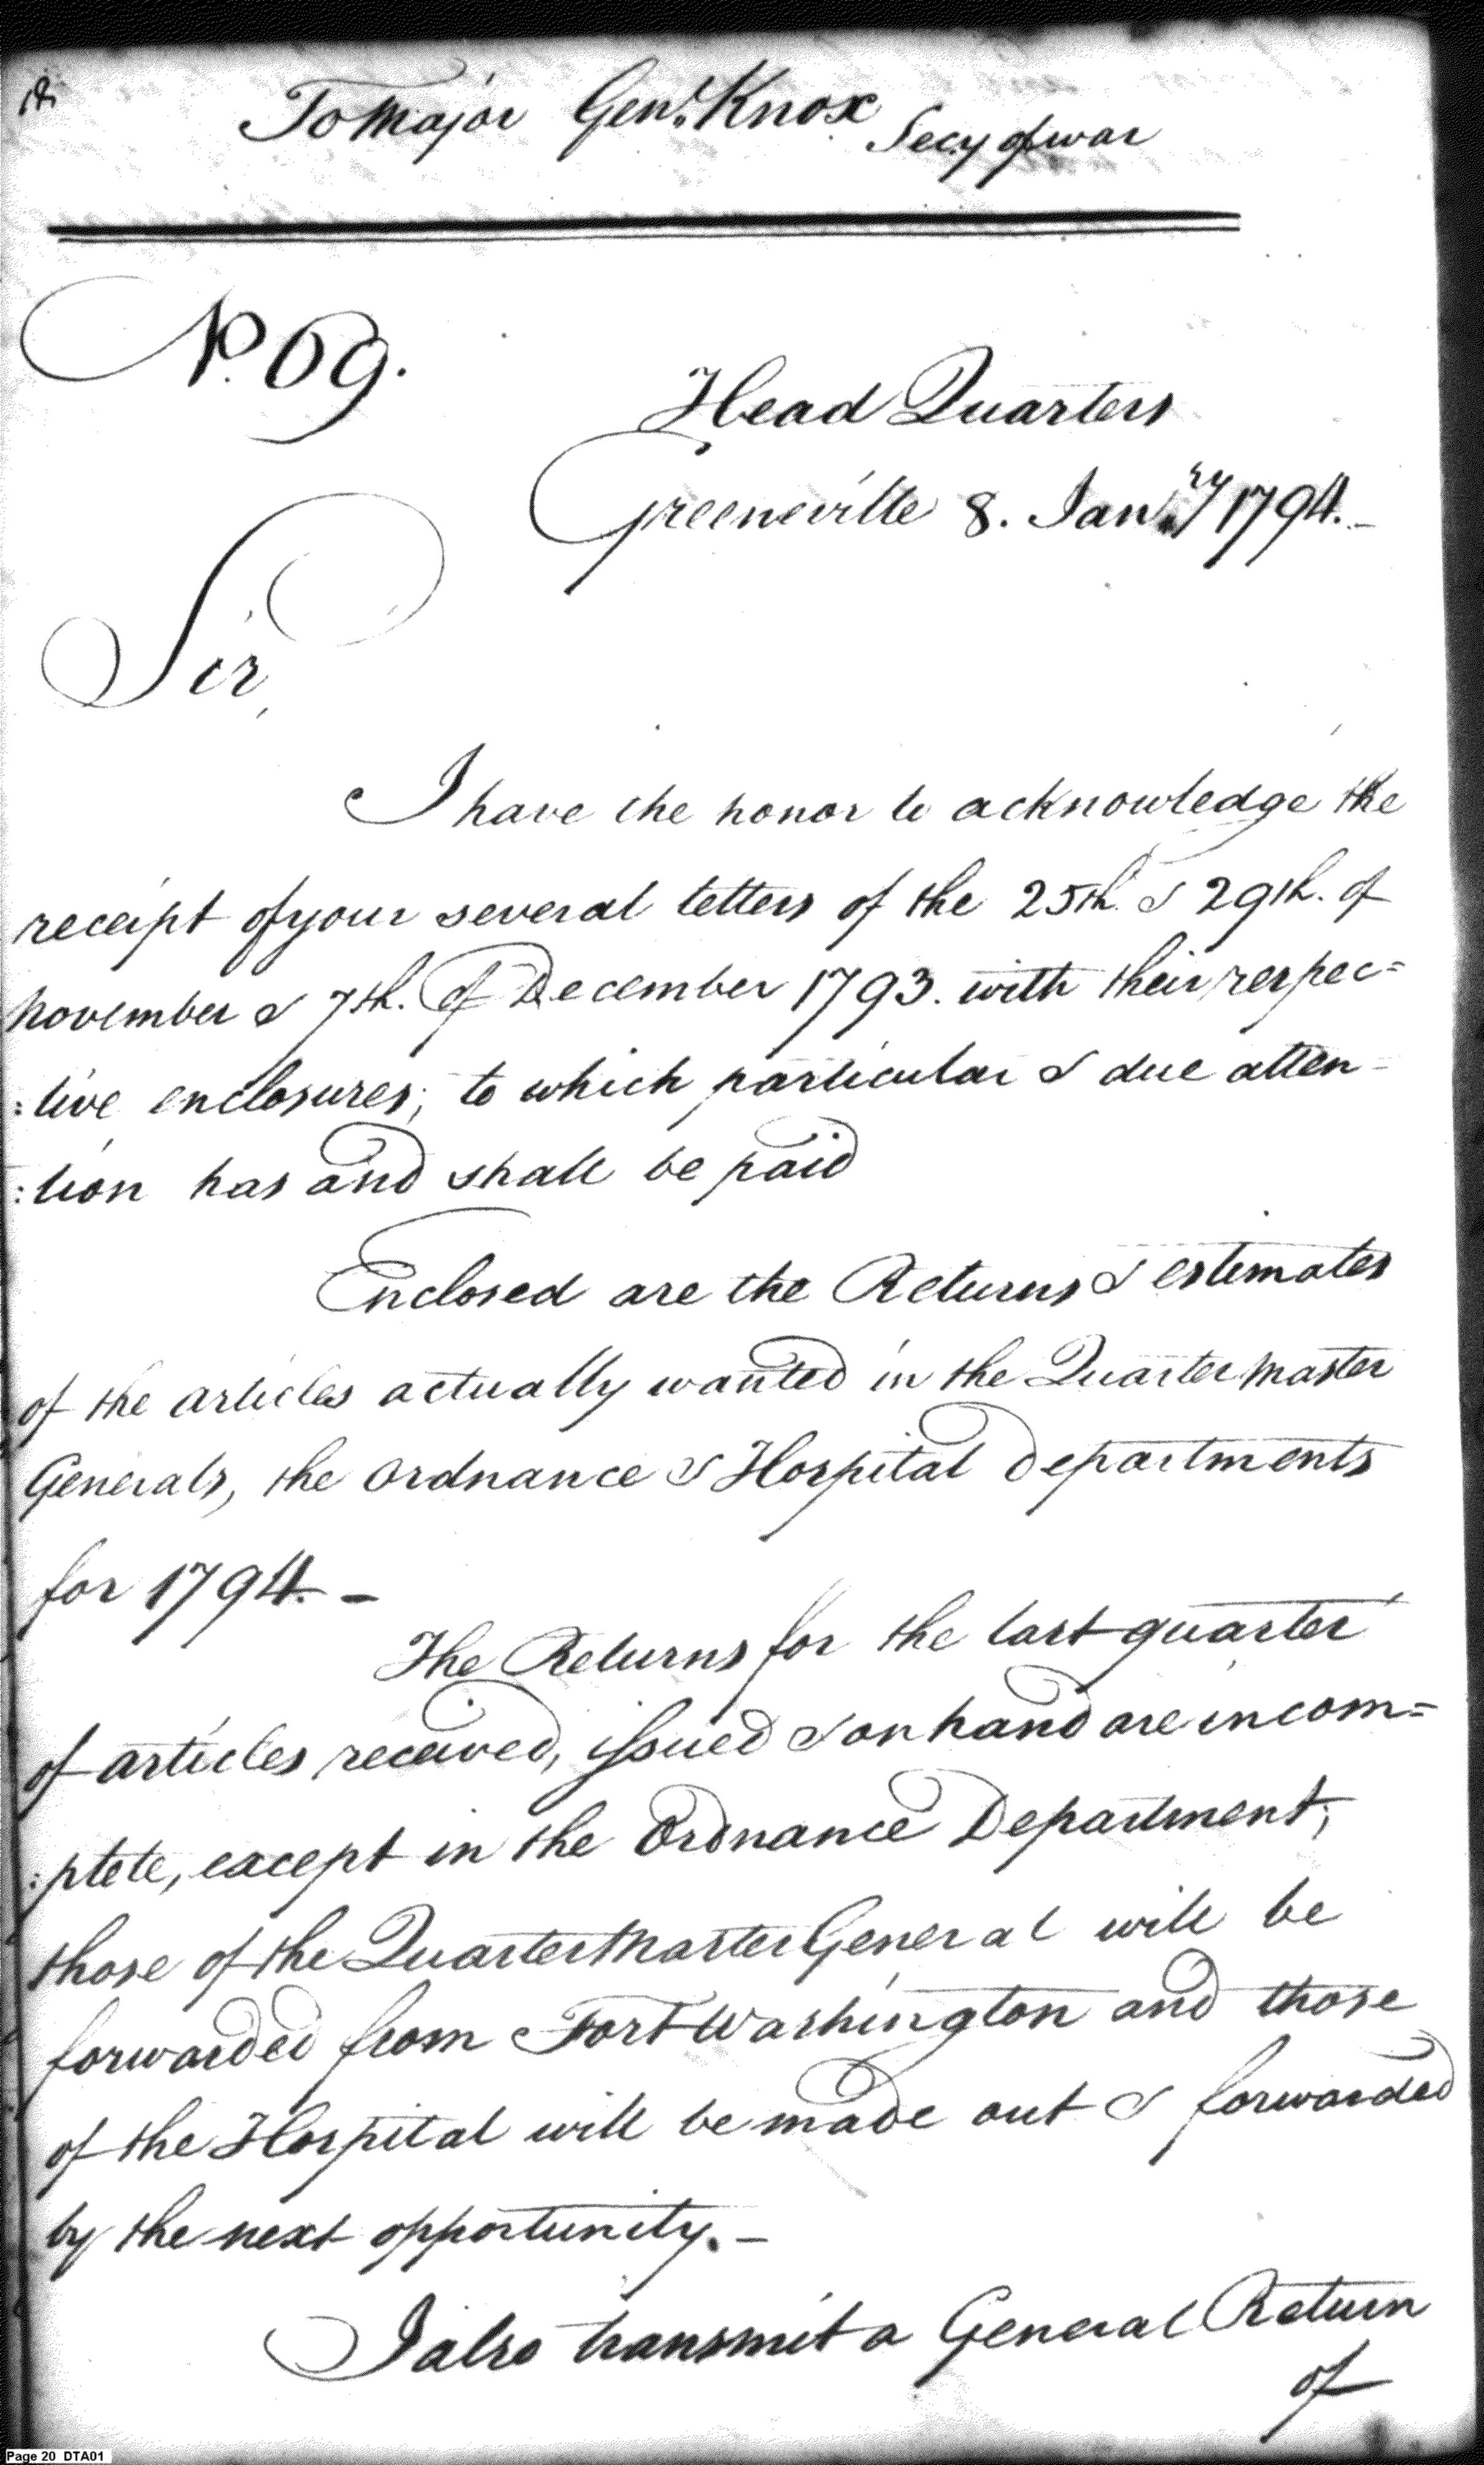 18
To Major Genl. Knox Secy of war
No. 69.
Head Quarters
Greeneville 8. Janry 1794.-
Sir,
I have the honor to acknowledge the
receipt of your several letters of the 25th. & 29th. of
November & 7th. of December 1793. with their respec=
:tive enclosures; to which particular & due atten-
:tion has and shall be paid
Enclosed are the Returns & estimates
of the articles actually wanted in the Quarter Master
Generals, the Ordnance & Hospital Departments
for 1794.-
The Returns for the last quarter
of articles received, issued & on hand are incom=
:plete, except in the Ordnance Department;
those of the Quarter Master General will be
forwarded from Fort Washington and those
of the Hospital will be made out & forwarded
by the next opportunity.-
I also transmit a General Return
of
Page 20 DTA01